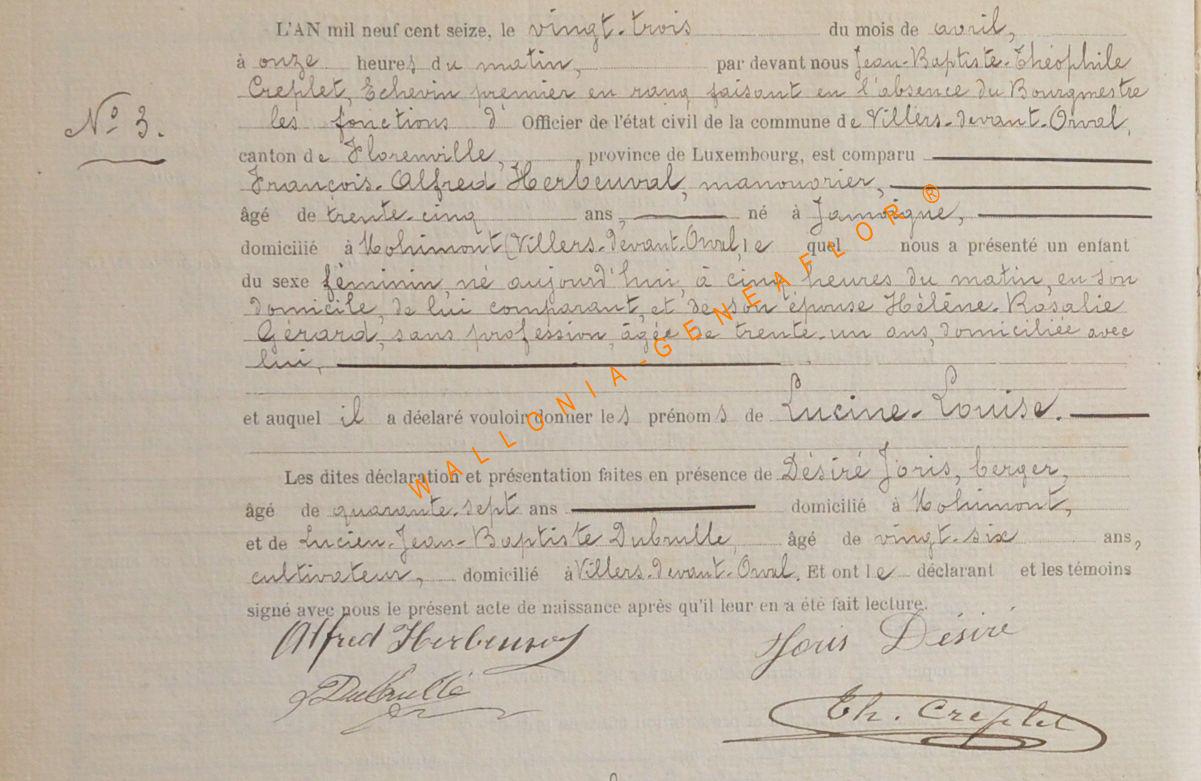 L'AN mil neuf cent seize, le vingt-trois du mois de avril,
à onze heures du matin, par devant nous Jean-Baptiste-Théophile
Creplet, Echevin premier en rang faisant en l'absence du Bourgmestre
N° 3.
les fonctions d' Officier de l'état civil de la commune de Villers-devant-Orval,
canton de Florenville, province de Luxembourg, est comparu
François-Alfred Herbeuval, manouvrier,
âgé de trente-cinq ans, né à Jamoigne,
domicilié à Mohimont (Villers-devant-Orval, le quel nous a présenté un enfant
du sexe féminin, né aujourd'hui, à cinq heures du matin, en son
domicile, de lui comparant, et de son épouse Hélène-Rosalie
Gérard, sans profession, âgée de trente-un ans, domiciliée avec
lui,
et auquel il a déclaré vouloir donner les prénoms de Lucine-Louise.
Les dites déclaration et présentation faites en présence de Désiré Joris, berger,
âgé de quarante-sept ans domicilié à Mohimont,
et de Lucien-Jean-Baptiste Dubrulle, âgé de vingt-six ans,
cultivateur, domicilié à Villers-devant-Orval. Et ont le déclarant et les témoins
signé avec nous le présent acte de naissance après qu'il leur en a été fait lecture.
Alfred Herbeuval Joris Désiré
Dubrulle
Th. Creplet
WALLONIA-GENEAFLOR®